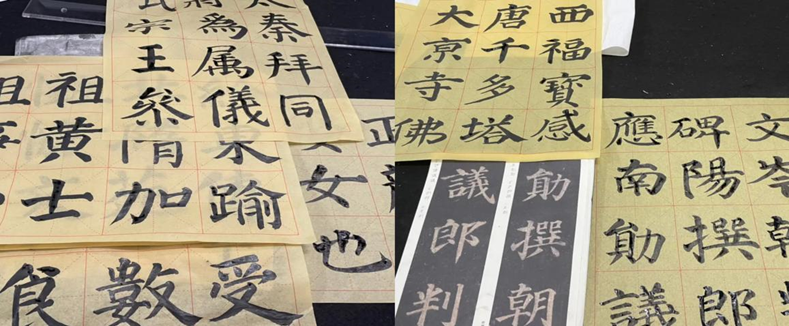 太
宗爲秦
王属拜
叅儀同
祖
黄隋東
士加踰
正
女
也
食數受
大唐西
京千福
寺多寶
佛塔感
應碑文
南陽岑
勛撰朝
議郎判
勛撰朝
議郎判